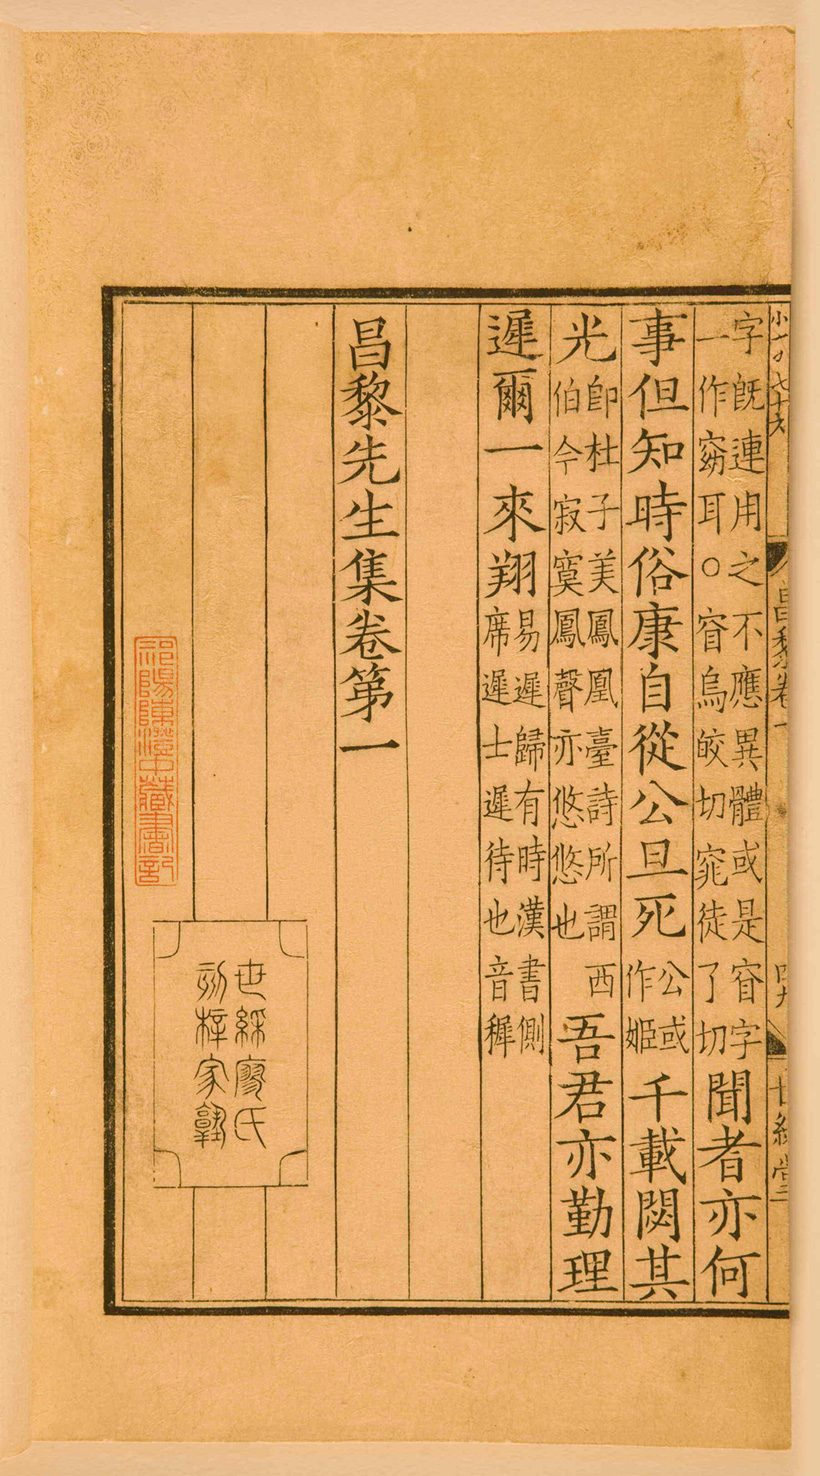 昌黎卷一
字旣連用之不應異體或是窅字
一作窈耳○窅烏皎切窕徒了切
聞者亦何
事但知時俗康自從公旦死
公或
作姬
千載閟其
光
卽杜子美鳳凰臺詩所謂西
伯今寂寞鳳聲亦悠悠也
吾君亦勤理
遲爾一來翔
易遲歸有時漢書側
席遲士遲待也音穉
昌黎先生集卷第一
世綵廖氏
刻梓家塾
祁陽陳澄中藏書記